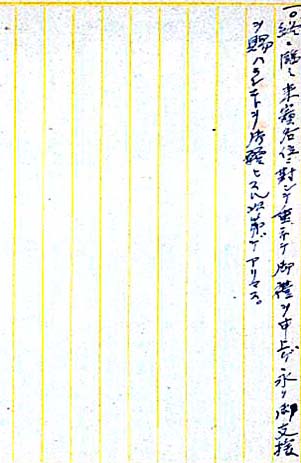 一〇、終ニ臨ミ来賓各位ニ対シテ重ネテ御礼ヲ申上ゲ永ク御支援
ヲ賜ハランコトヲ御願ヒスル次第デアリマス。